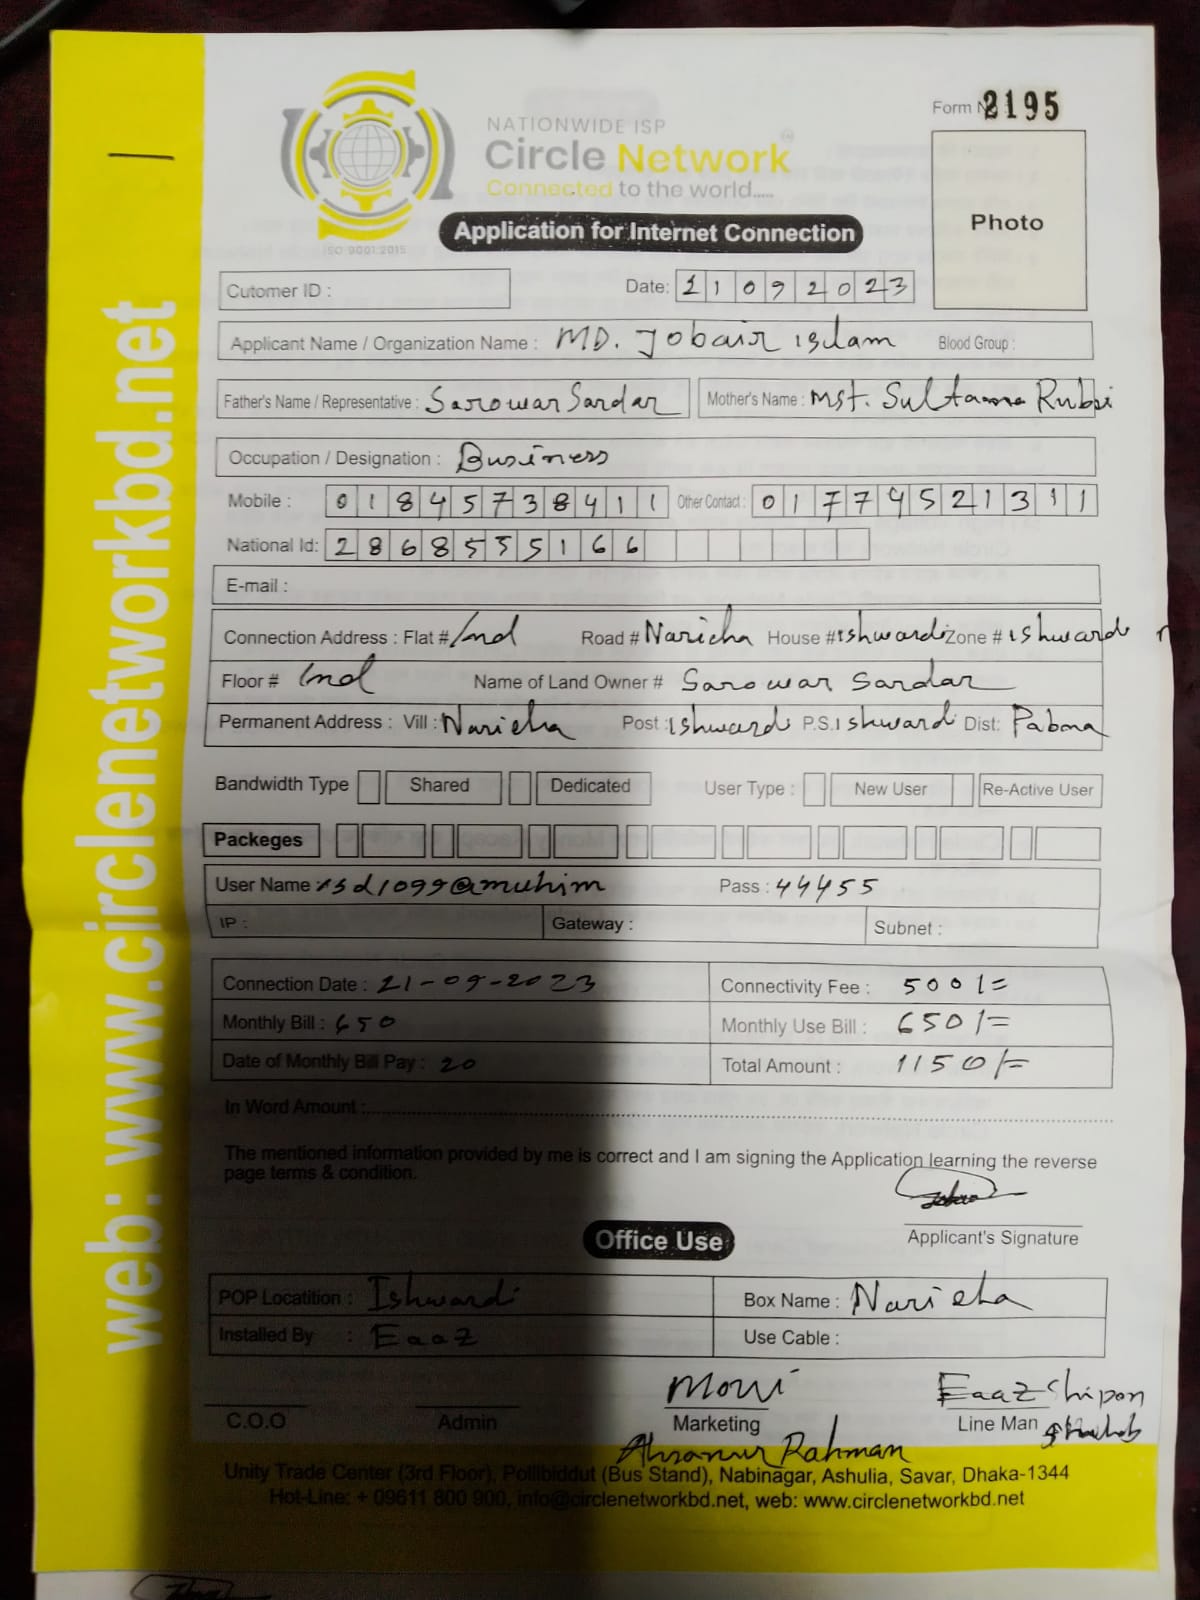 Form No 2195
NATIONWIDE ISP
Circle Network
Connected to the world.....
ISO 9001:2015
Application for Internet Connection
Photo
web: www.circlenetworkbd.net
Cutomer ID :
Date: 21092023
Applicant Name / Organization Name : MD. Jobair islam Blood Group :
Father's Name / Representative : Sarowar Sardar Mother's Name : Mst. Sultana Rubi
Occupation / Designation : Business
Mobile : 01845738411 Other Contact : 01774521311
National Id: 2868555166
E-mail :
Connection Address : Flat # Road # Naricha House # ishwardi Zone # ishwardi
Floor # Name of Land Owner # Sarowar Sardar
Permanent Address : Vill : Naricha Post : ishwardi P.S. Ishwardi Dist: Pabna
Bandwidth Type Shared Dedicated User Type : New User Re-Active User
Packeges
User Name : isd1099@muhim Pass : 44455
IP : Gateway : Subnet :
Connection Date : 21-09-2023 Connectivity Fee : 500/=
Monthly Bill : 650 Monthly Use Bill : 650/=
Date of Monthly Bill Pay : 20 Total Amount : 1150/=
In Word Amount :
The mentioned information provided by me is correct and I am signing the Application learning the reverse
page terms & condition.
Applicant's Signature
Office Use
POP Locatition : Ishwardi Box Name : Naricha
Installed By : Eaaz Use Cable :
Eaaz Shipon
C.O.O Admin Marketing Line Man
Ahsanur Rahman
Unity Trade Center (3rd Floor), Pollibiddut (Bus Stand), Nabinagar, Ashulia, Savar, Dhaka-1344
Hot-Line: + 09611 800 900, info@circlenetworkbd.net, web: www.circlenetworkbd.net